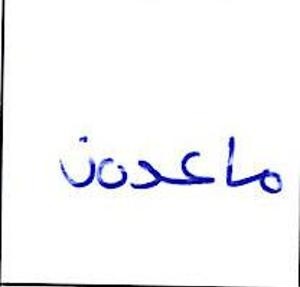 ماعدون